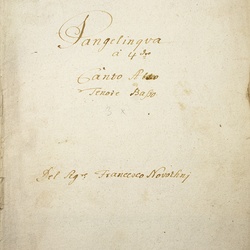 Pangelingva
à 4tro
Canto Alto
Tenore Basso
Del Sigre Francesco Novotni